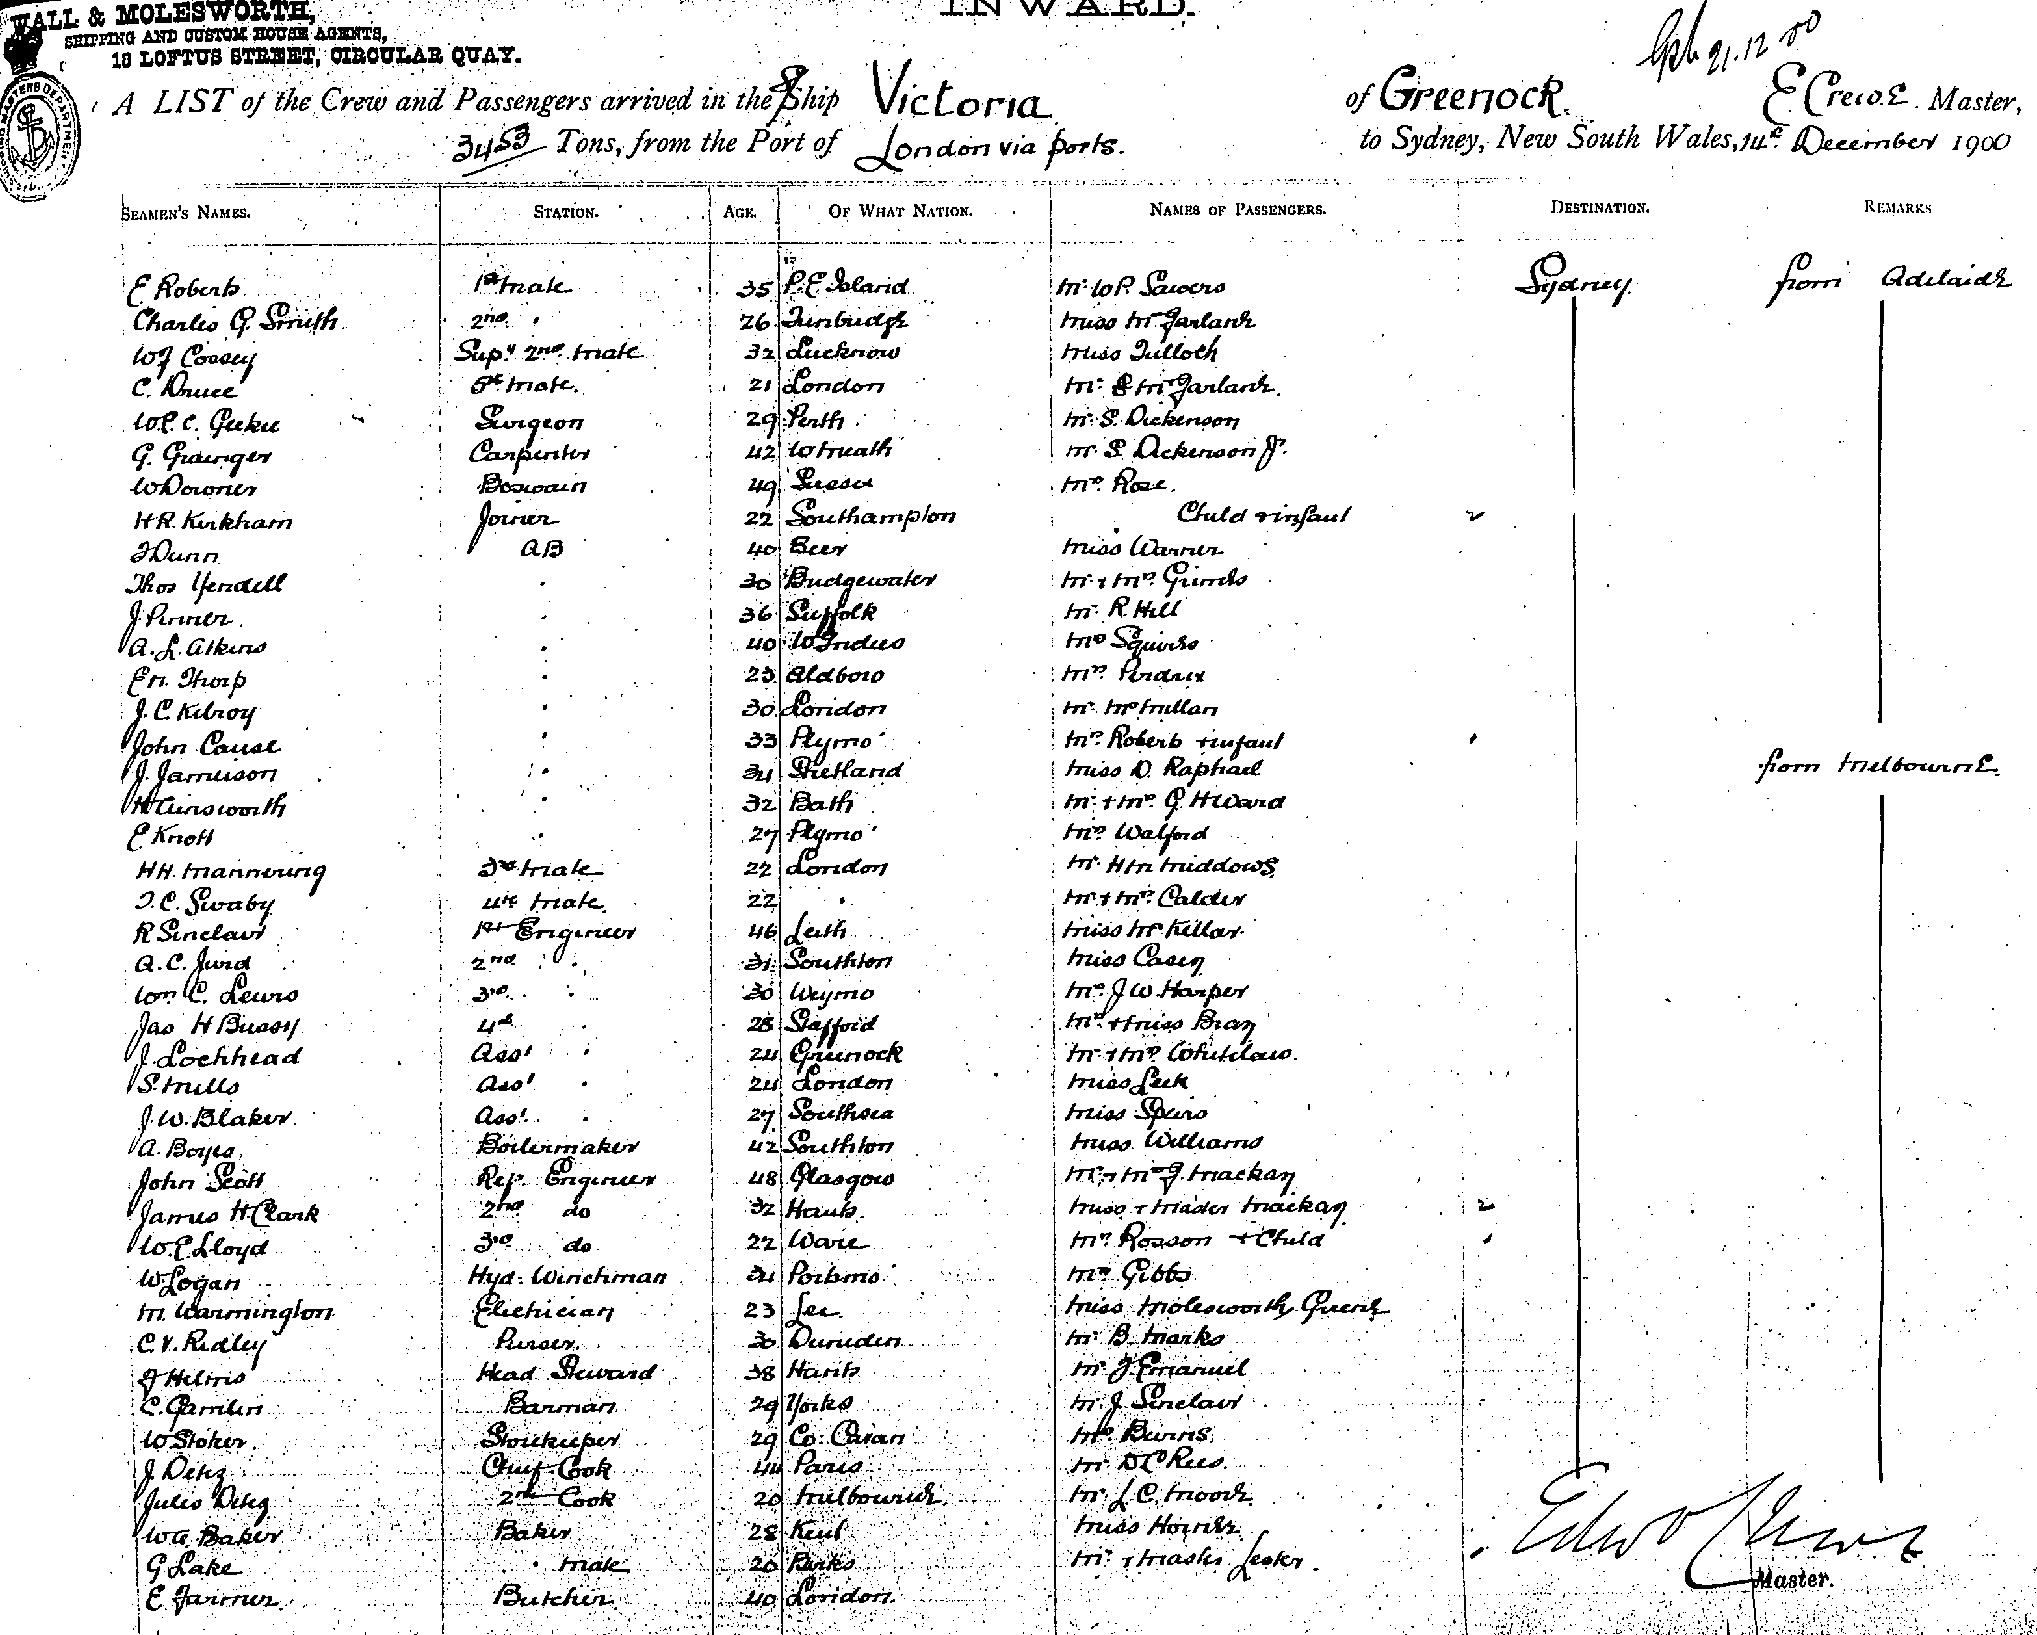 WALL & MOLESWORTH,
SHIPPING AND CUSTOM HOUSE AGENTS,
18 LOFTUS STREET, CIRCULAR QUAY.
INWARD.
21.12.00
A LIST of the Crew and Passengers arrived in the Ship Victoria of Greenock. E Crewe. Master,
3453 Tons, from the Port of London via ports. to Sydney, New South Wales, 14th December 1900
SEAMEN'S NAMES. STATION. AGE. OF WHAT NATION. NAMES OF PASSENGERS. DESTINATION. REMARKS
E Roberts 1st mate 35 P.E Island Mr W P. Sawers Sydney from Adelaide
Charles G. Smith 2nd " 26 Tunbridge Miss McFarlane
WJ Cossey Supy 2nd mate 32 Lucknow Miss Tulloch
C. Druce 5th mate. 21 London Mr. McFarlane.
Surgeon 29 Perth Mr. S. Dickenson
G. Grainger Carpenter 42 Mr S. Dickenson Jr.
W Downer Boswain 49 Sussex Mrs. Rose.
H.R. Kirkham Joiner 22 Southampton Child + infant 2
J Dunn AB 40 Beer Miss Warner
Thos Yendell " 30 Bridgewater Mr + Mrs. Grimes
J. Pirmer. " 36 Suffolk Mr. R. Hill
A. L. Atkins " 40 W Indies Mrs Squires
Em. Thorp " 23 Aldboro Mrs.
J. C. Kilroy " 30 London Mr. McMillan
John Cause " 33 Plymo' Mrs. Roberts + infant
J. Jamieson " 34 Shetland Miss D. Raphael from Melbourne.
H Ainsworth " 32 Bath Mr. + Mrs. G. H Ward
E Knott " 27 Plymo' Mrs. Walford
HH. Mannering 3rd mate 22 London Mr. H M Middows
J. C. Swaby 4th mate. 22 " Mr + Mrs. Calder
R Sinclair 1st Engineer 46 Leith Miss McKellar
A. C. Jurd 2nd " 31 Southton Miss Casey
Wm C. Lewis 3rd " 30 Weymo Mrs. J W Harper
Jas H Bussy 4th " 28 Stafford Mrs. + Miss Bray
J. Lochhead Asst " 24 Greenock Mr + Mrs. Whitelaw.
S. Mills Asst " 24 London Miss Leek
J. W. Blaker. Asst. " 27 Southsea Miss Spiers
A. Boyes. Boilermaker 42 Southton Miss Williams
John Scott Ref. Engineer 48 Glasgow Mr + Mrs J. Mackay
James H. Clark 2nd do 32 Hants. Miss + Master Mackay 2
W. E Lloyd 3rd do 22 Ware Mrs. Rosson + Child
W. Logan Hyd. Winchman 24 Portsmo' Mrs Gibbs
M. Warmington Electrician 23 Lee Miss Molesworth Greene
C. V. Ridley Purser. 30 Dunedin Mr. B. Marks
J Helms Head Steward 38 Hants Mr J. Emanuel
C. Gamlin Barman 29 Yorks Mr. J. Sinclair
W Stoker. Storekeeper 29 Co. Cavan Mrs Burns.
J. Detez Chief Cook 44 Paris Mr. D C Rees.
Jules Detez 2nd Cook 20 Melbourne Mr. L. C. Moore.
W A Baker Baker 28 Kent Miss Horne
G Lake " mate 20 Mr. + Master Lesker.
E Farmer. Butcher 40 London.
Edwd Crewe
Master.